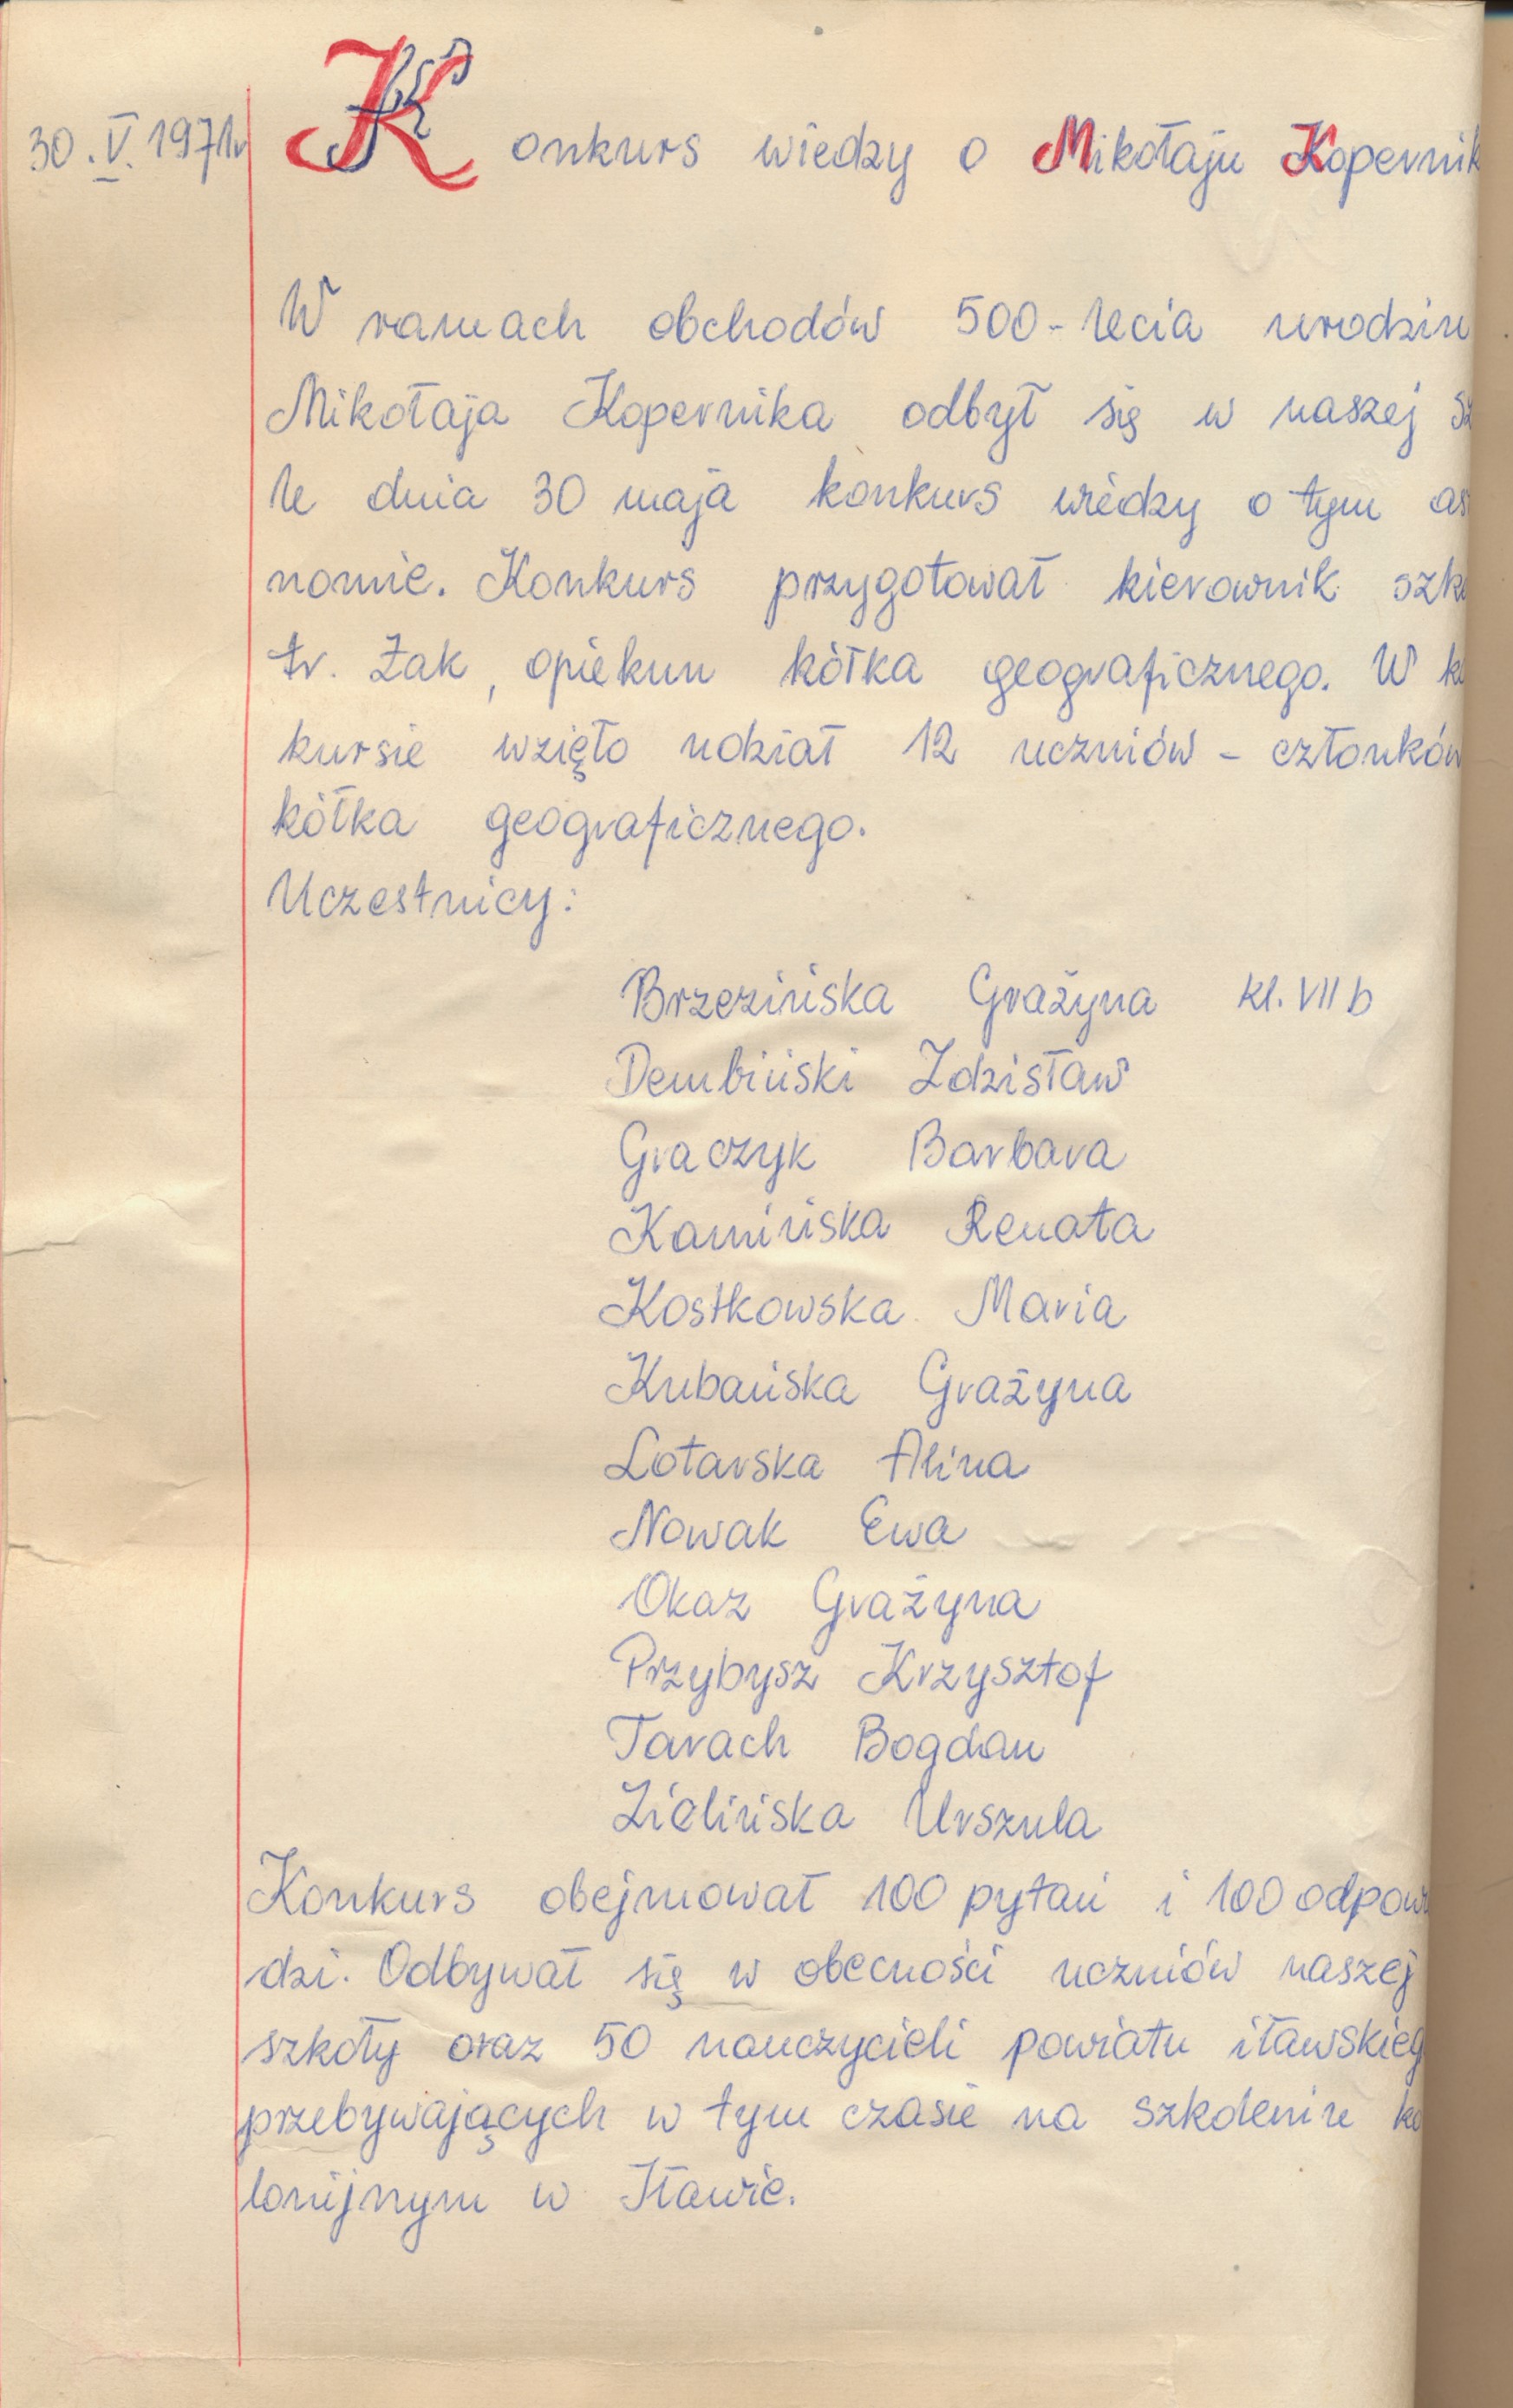 30.V.1971r Konkurs wiedzy o Mikołaju Kopernik
W ramach obchodów 500-lecia urodzin
Mikołaja Kopernika odbył się w naszej sz
le dnia 30 maja konkurs wiedzy o tym as
nomie. Konkurs przygotował kierownik szk
tr. Żak, opiekun kółka geograficznego. W k
kursie wzięło udział 12 uczniów - członków
kółka geograficznego.
Uczestnicy:
Brzezińska Grażyna kl. VII b
Dembiński Zdzisław
Graczyk Barbara
Kamińska Renata
Kostkowska Maria
Kubańska Grażyna
Lotarska Alina
Nowak Ewa
Okaz Grażyna
Przybysz Krzysztof
Tarach Bogdan
Zielińska Urszula
Konkurs obejmował 100 pytań i 100 odpow
dzi. Odbywał się w obecności uczniów naszej
szkoły oraz 50 nauczycieli powiatu iławskieg
przebywających w tym czasie na szkoleniu ko
lonijnym w Iławie.